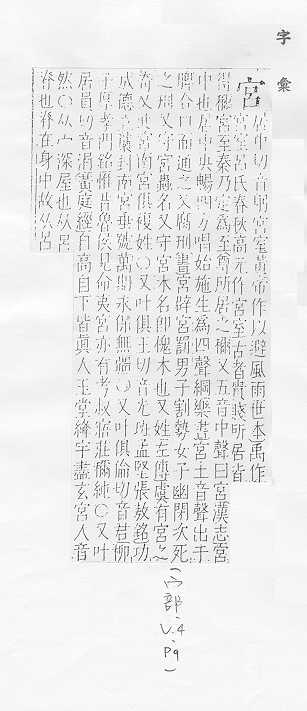 字彙
宮 居中切音弓宮室黃帝作以避風雨世本禹作
宮室呂氏春秋高元作宮室古者貴賤所居皆
得稱宮至秦乃定爲至尊所居之稱又五音中聲曰宮漢志宮
中也居中央暢四方唱始施生爲四聲綱樂書宮土音聲出于
脾合口而通之又腐刑書宮辟宮罰男子割勢女子幽閉次死
之刑又守宮蟲名又守宮木名卽槐木也又姓左傳虞有宮之
奇又
南宮俱複姓○又叶俱王切音光
孟堅張敖銘功
成德
封南宮垂號萬期永保無疆○又叶俱倫切音君柳
子厚
門銘惟昔魯侯見命夷宮亦有考叔寤莊稱純○又叶
居員切音涓黃庭經自高自下皆眞人玉堂絳宇盡玄宮人音
然○从宀深屋也从呂
脊也脊在身中故从呂
(宀部.V.4.P9)